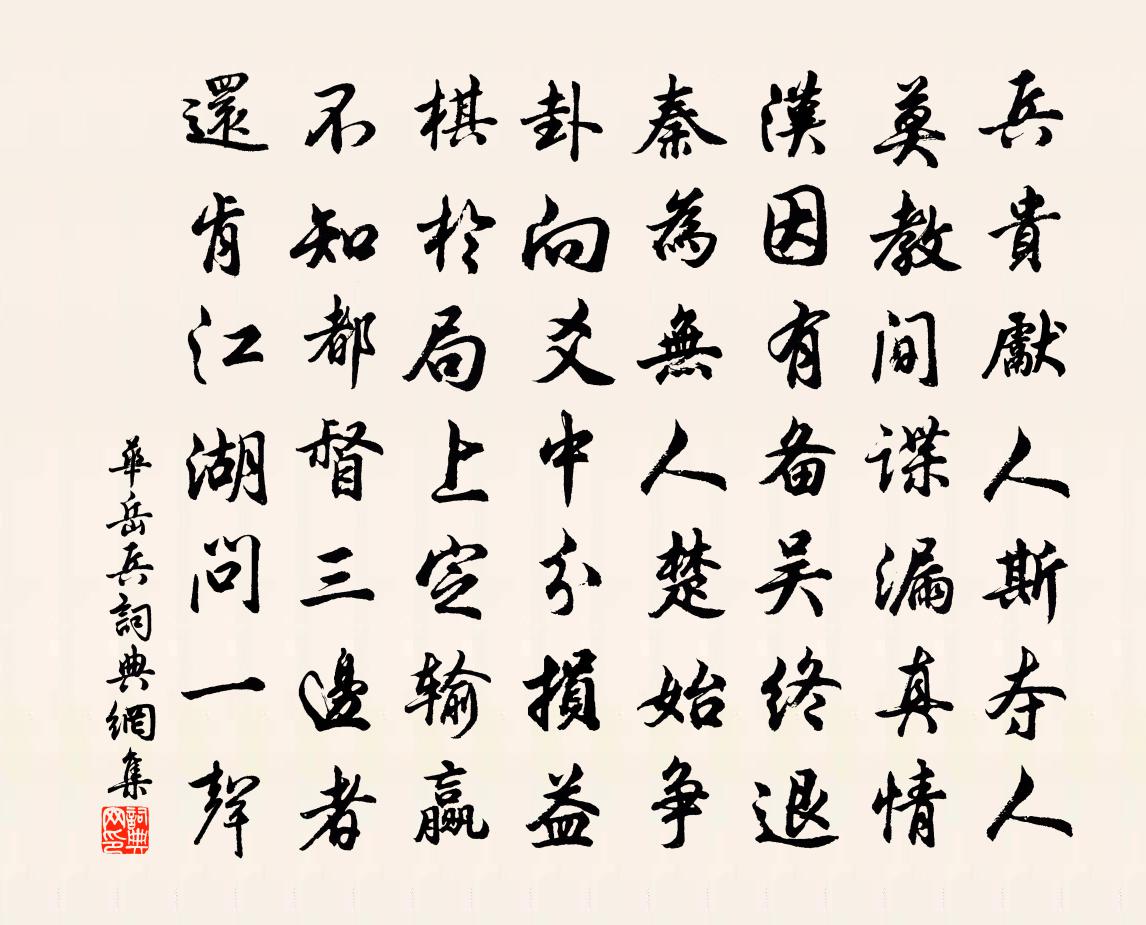 兵貴獻人斯夺人
莫教間谍漏真情
漢因有备吴终退
秦為無人楚始争
卦向爻中分損益
棋於局上定输赢
不知都督三邊者
還肯江湖問一聲
華岳兵詞典網集
詞典网印